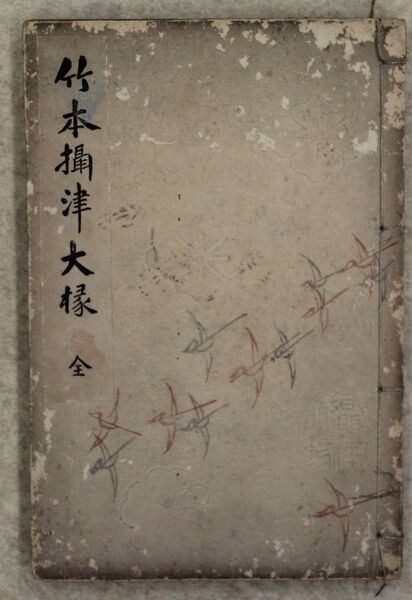 竹本攝津大椽 全